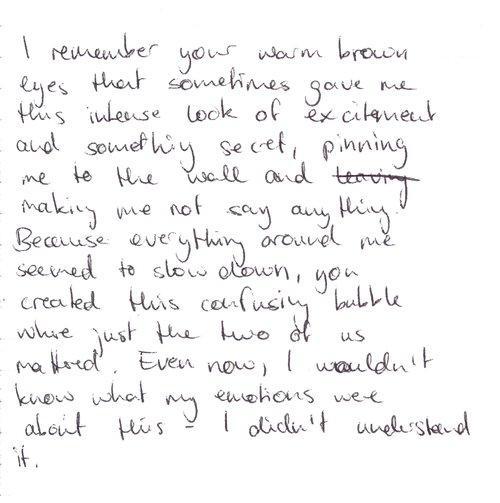 I remember your warm brown
eyes that sometimes gave me
this intense look of excitement
and something secret, pinning
me to the wall and leaving
making me not say anything.
Because everything around me
seemed to slow down, you
created this confusing bubble
where just the two of us
mattered. Even now, I wouldn't
know what my emotions were
about this - I didn't understand
it.